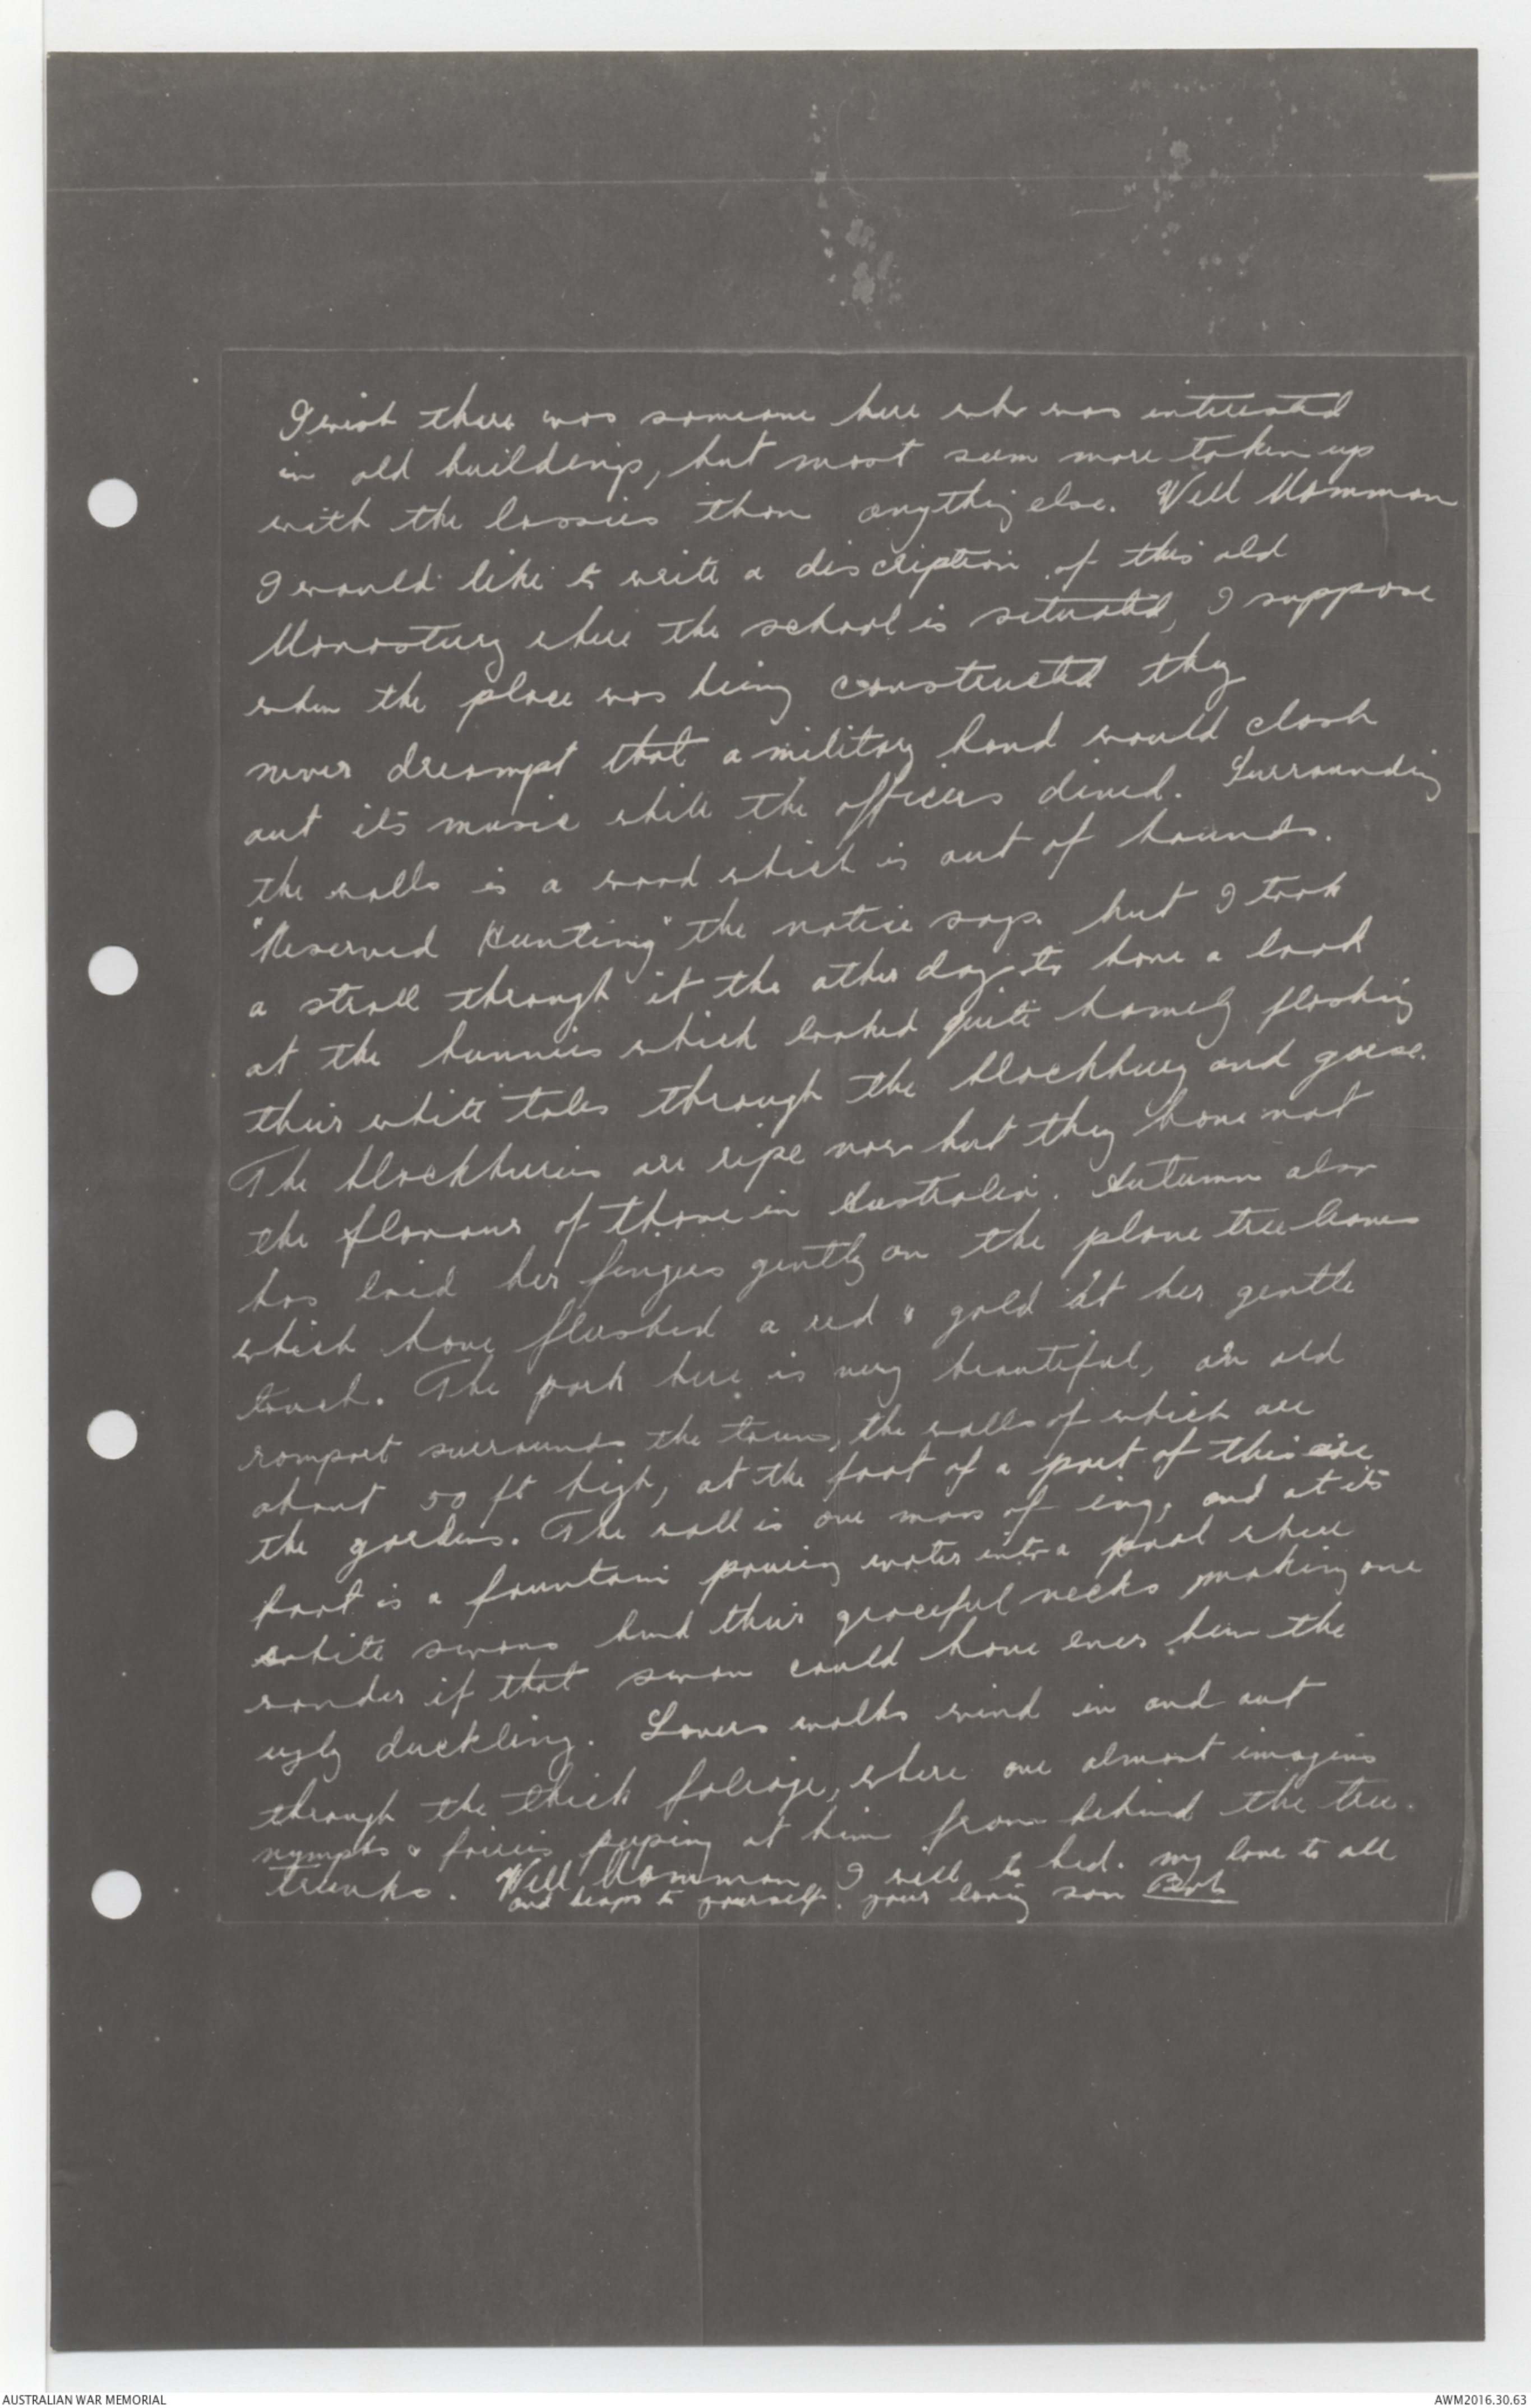 I wish there was someone here who was interested
in old buildings, but most seem more taken up
with the lassies than anything else. Well Mamman
I would like to write a discription of this old
Monastury where the school is situated, I suppose
when the place was being constructed they
never dreampt that a military band would clash
out its music while the officers dined. Surrounding
the walls is a wood which is out of bounds.
"Reserved Hunting" the notice says. but I took
a stroll through it the other day to have a look
at the bunnies which looked quite homely flashing
their white tales through the blackbury and gorse.
The blackburies are ripe now but they have not
the flavour of those in Australia. Autumn also
has laid her fingers gently on the plane tree leaves
which have flushed a red & gold at her gentle
touch. The park here is very beautiful, an old
rampart surrounds the town, the walls of which are
about 50 ft high, at the foot of a part of this are
the gardens. The wall is one mass of ivy, and at its
foot is a fountain pouring water into a pool where
white swans bend their graceful necks making one
wonder if that swan could have ever been the
ugly duckling. Lovers walks wind in and out
through the thick foliage, where one almost imagins
nymphs & fairies peeping at him from behind the tree.
trunks. Well Mamman I will to bed. my love to all
and heaps to yourself. your loving son Bert
AUSTRALIAN WAR MEMORIAL
AWM2016.30.63